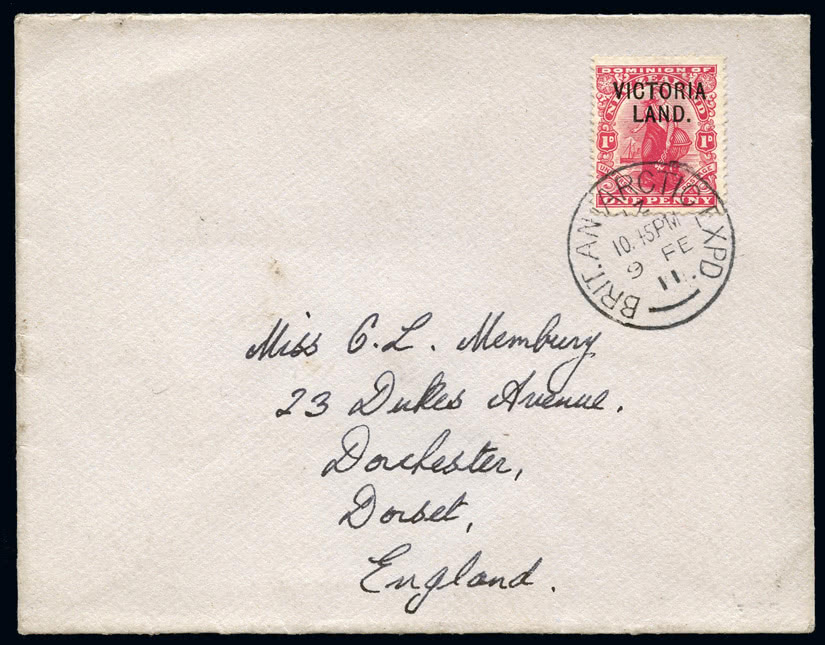 DOMINION OF
NEW ZEALAND
VICTORIA
LAND.
1D 1D
ONE PENNY
BRIT. ANTARCTIC EXPD.
10.45PM
9 FE
11.
Miss C. L. Membury
23 Dukes Avenue.
Dorchester,
Dorset,
England.